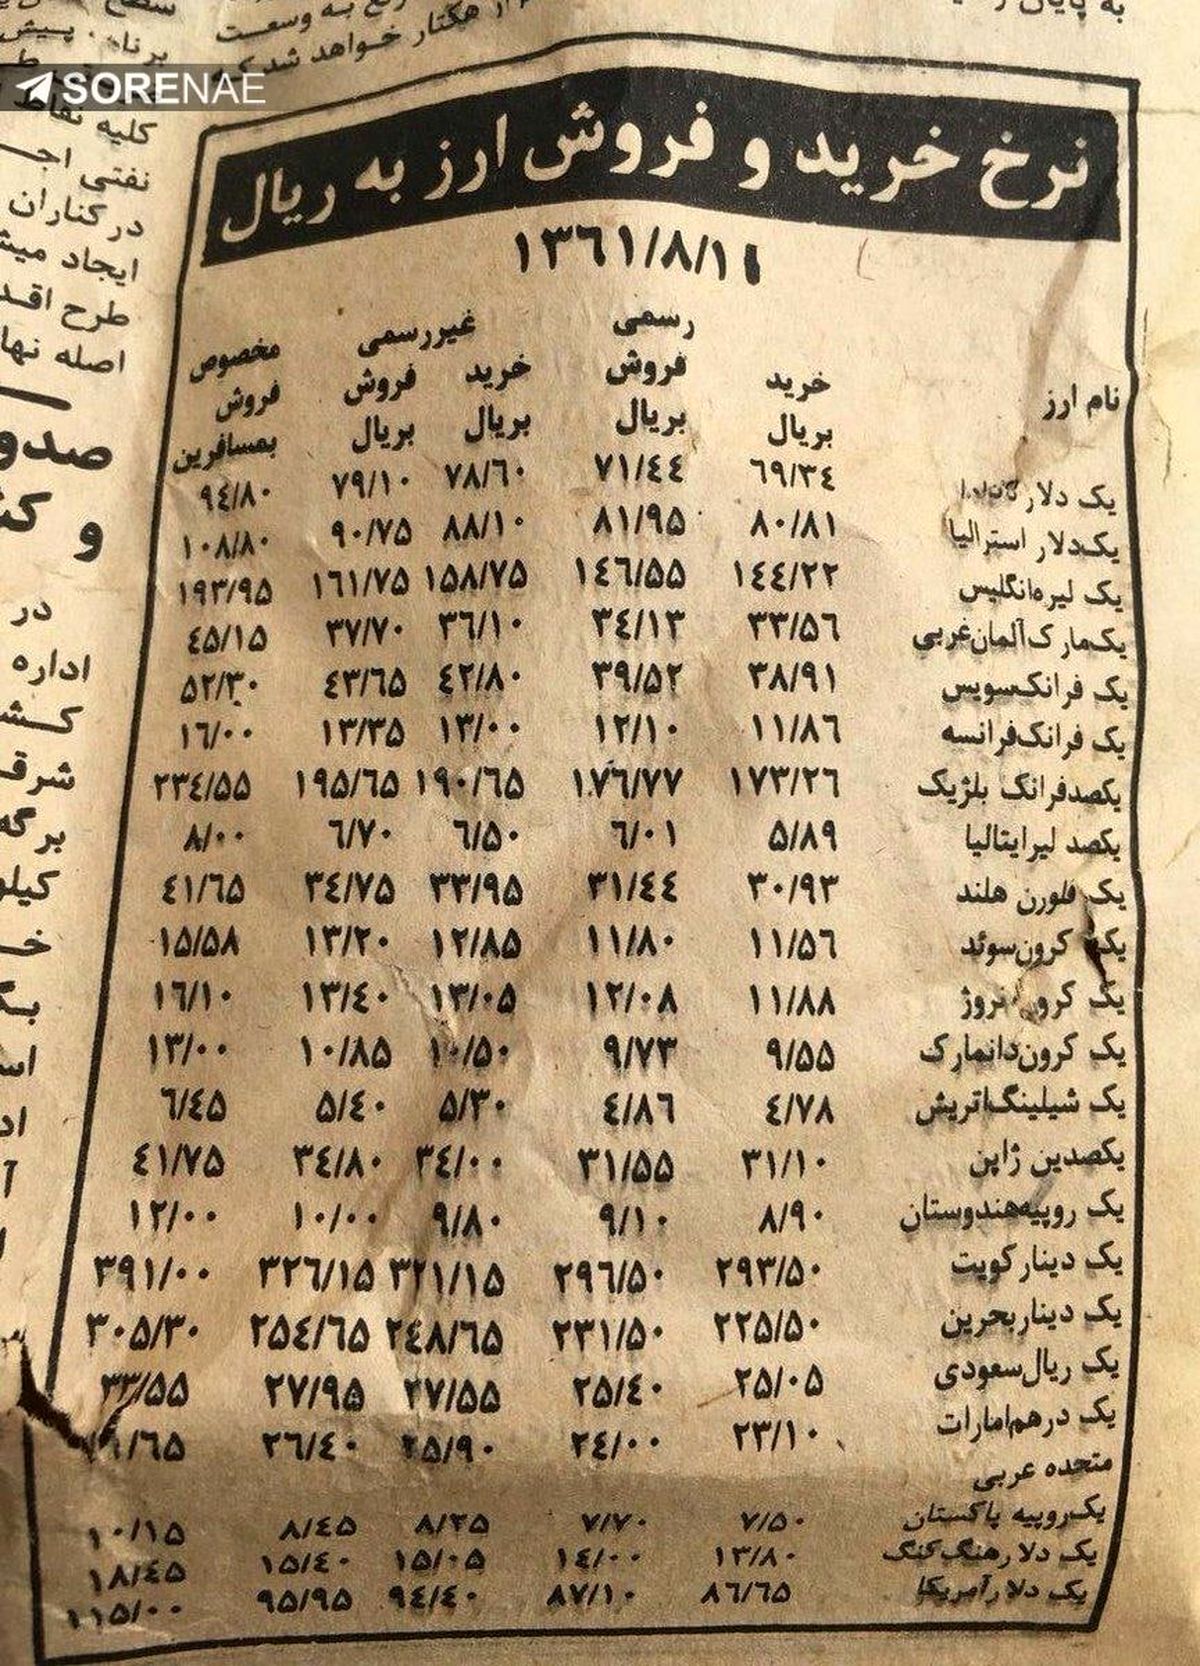 SORENAE
به پایان
به وسعت
هکتار خواهد شد که
کلیه نقاط
نفتی
در کناران
ایجاد
طرح
اصله
و
در
اداره
شرق
نرخ خرید و فروش ارز به ریال
۱۳۶۱/۸/۱۱
نام ارز رسمی غیررسمی مخصوص
خرید فروش خرید فروش فروش
بریال بریال بریال بریال بمسافرین
یک دلار کانادا ۶۹/۳۴ ۷۱/۴۴ ۷۸/۶۰ ۷۹/۱۰ ۹۴/۸۰
یکدلار استرالیا ۸۰/۸۱ ۸۱/۹۵ ۸۸/۱۰ ۹۰/۷۵ ۱۰۸/۸۰
یک لیره‌انگلیس ۱۴۴/۲۲ ۱۴۶/۵۵ ۱۵۸/۷۵ ۱۶۱/۷۵ ۱۹۳/۹۵
یک‌مارک آلمان‌غربی ۳۳/۵۶ ۳۴/۱۳ ۳۶/۱۰ ۳۷/۷۰ ۴۵/۱۵
یک فرانک‌سویس ۳۸/۹۱ ۳۹/۵۲ ۴۲/۸۰ ۴۳/۶۵ ۵۲/۳۰
یک فرانک‌فرانسه ۱۱/۸۶ ۱۲/۱۰ ۱۳/۰۰ ۱۳/۳۵ ۱۶/۰۰
یکصدفرانک بلژیک ۱۷۳/۲۶ ۱۷۶/۷۷ ۱۹۰/۶۵ ۱۹۵/۶۵ ۲۳۴/۵۵
یکصد لیرایتالیا ۵/۸۹ ۶/۰۱ ۶/۵۰ ۶/۷۰ ۸/۰۰
یک فلورن هلند ۳۰/۹۳ ۳۱/۴۴ ۳۳/۹۵ ۳۴/۷۵ ۴۱/۶۵
یک کرون‌سوئد ۱۱/۵۶ ۱۱/۸۰ ۱۲/۸۵ ۱۳/۲۰ ۱۵/۵۸
یک کرون نروژ ۱۱/۸۸ ۱۲/۰۸ ۱۳/۰۵ ۱۳/۴۰ ۱۶/۱۰
یک کرون‌دانمارک ۹/۵۵ ۹/۷۳ ۱۰/۵۰ ۱۰/۸۵ ۱۳/۰۰
یک شیلینگ‌اتریش ۴/۷۸ ۴/۸۶ ۵/۳۰ ۵/۴۰ ۶/۴۵
یکصدین ژاپن ۳۱/۱۰ ۳۱/۵۵ ۳۴/۰۰ ۳۴/۸۰ ۴۱/۷۵
یک روپیه‌هندوستان ۸/۹۰ ۹/۱۰ ۹/۸۰ ۱۰/۰۰ ۱۲/۰۰
یک دینارکویت ۲۹۳/۵۰ ۲۹۶/۵۰ ۳۲۱/۱۵ ۳۲۶/۱۵ ۳۹۱/۰۰
یک دیناربحرین ۲۲۵/۵۰ ۲۳۱/۵۰ ۲۴۸/۶۵ ۲۵۴/۶۵ ۳۰۵/۳۰
یک ریال‌سعودی ۲۵/۰۵ ۲۵/۴۰ ۲۷/۵۵ ۲۷/۹۵ ۳۳/۵۵
یک درهم‌امارات ۲۳/۱۰ ۲۴/۰۰ ۲۵/۹۰ ۲۶/۴۰
متحده عربی
یک‌روپیه پاکستان ۷/۵۰ ۷/۷۰ ۸/۲۵ ۸/۴۵ ۱۰/۱۵
یک دلارهنگ‌کنگ ۱۳/۸۰ ۱۴/۰۰ ۱۵/۰۵ ۱۵/۴۰ ۱۸/۴۵
یک دلارآمریکا ۸۶/۶۵ ۸۷/۱۰ ۹۴/۴۰ ۹۵/۹۵ ۱۱۵/۰۰